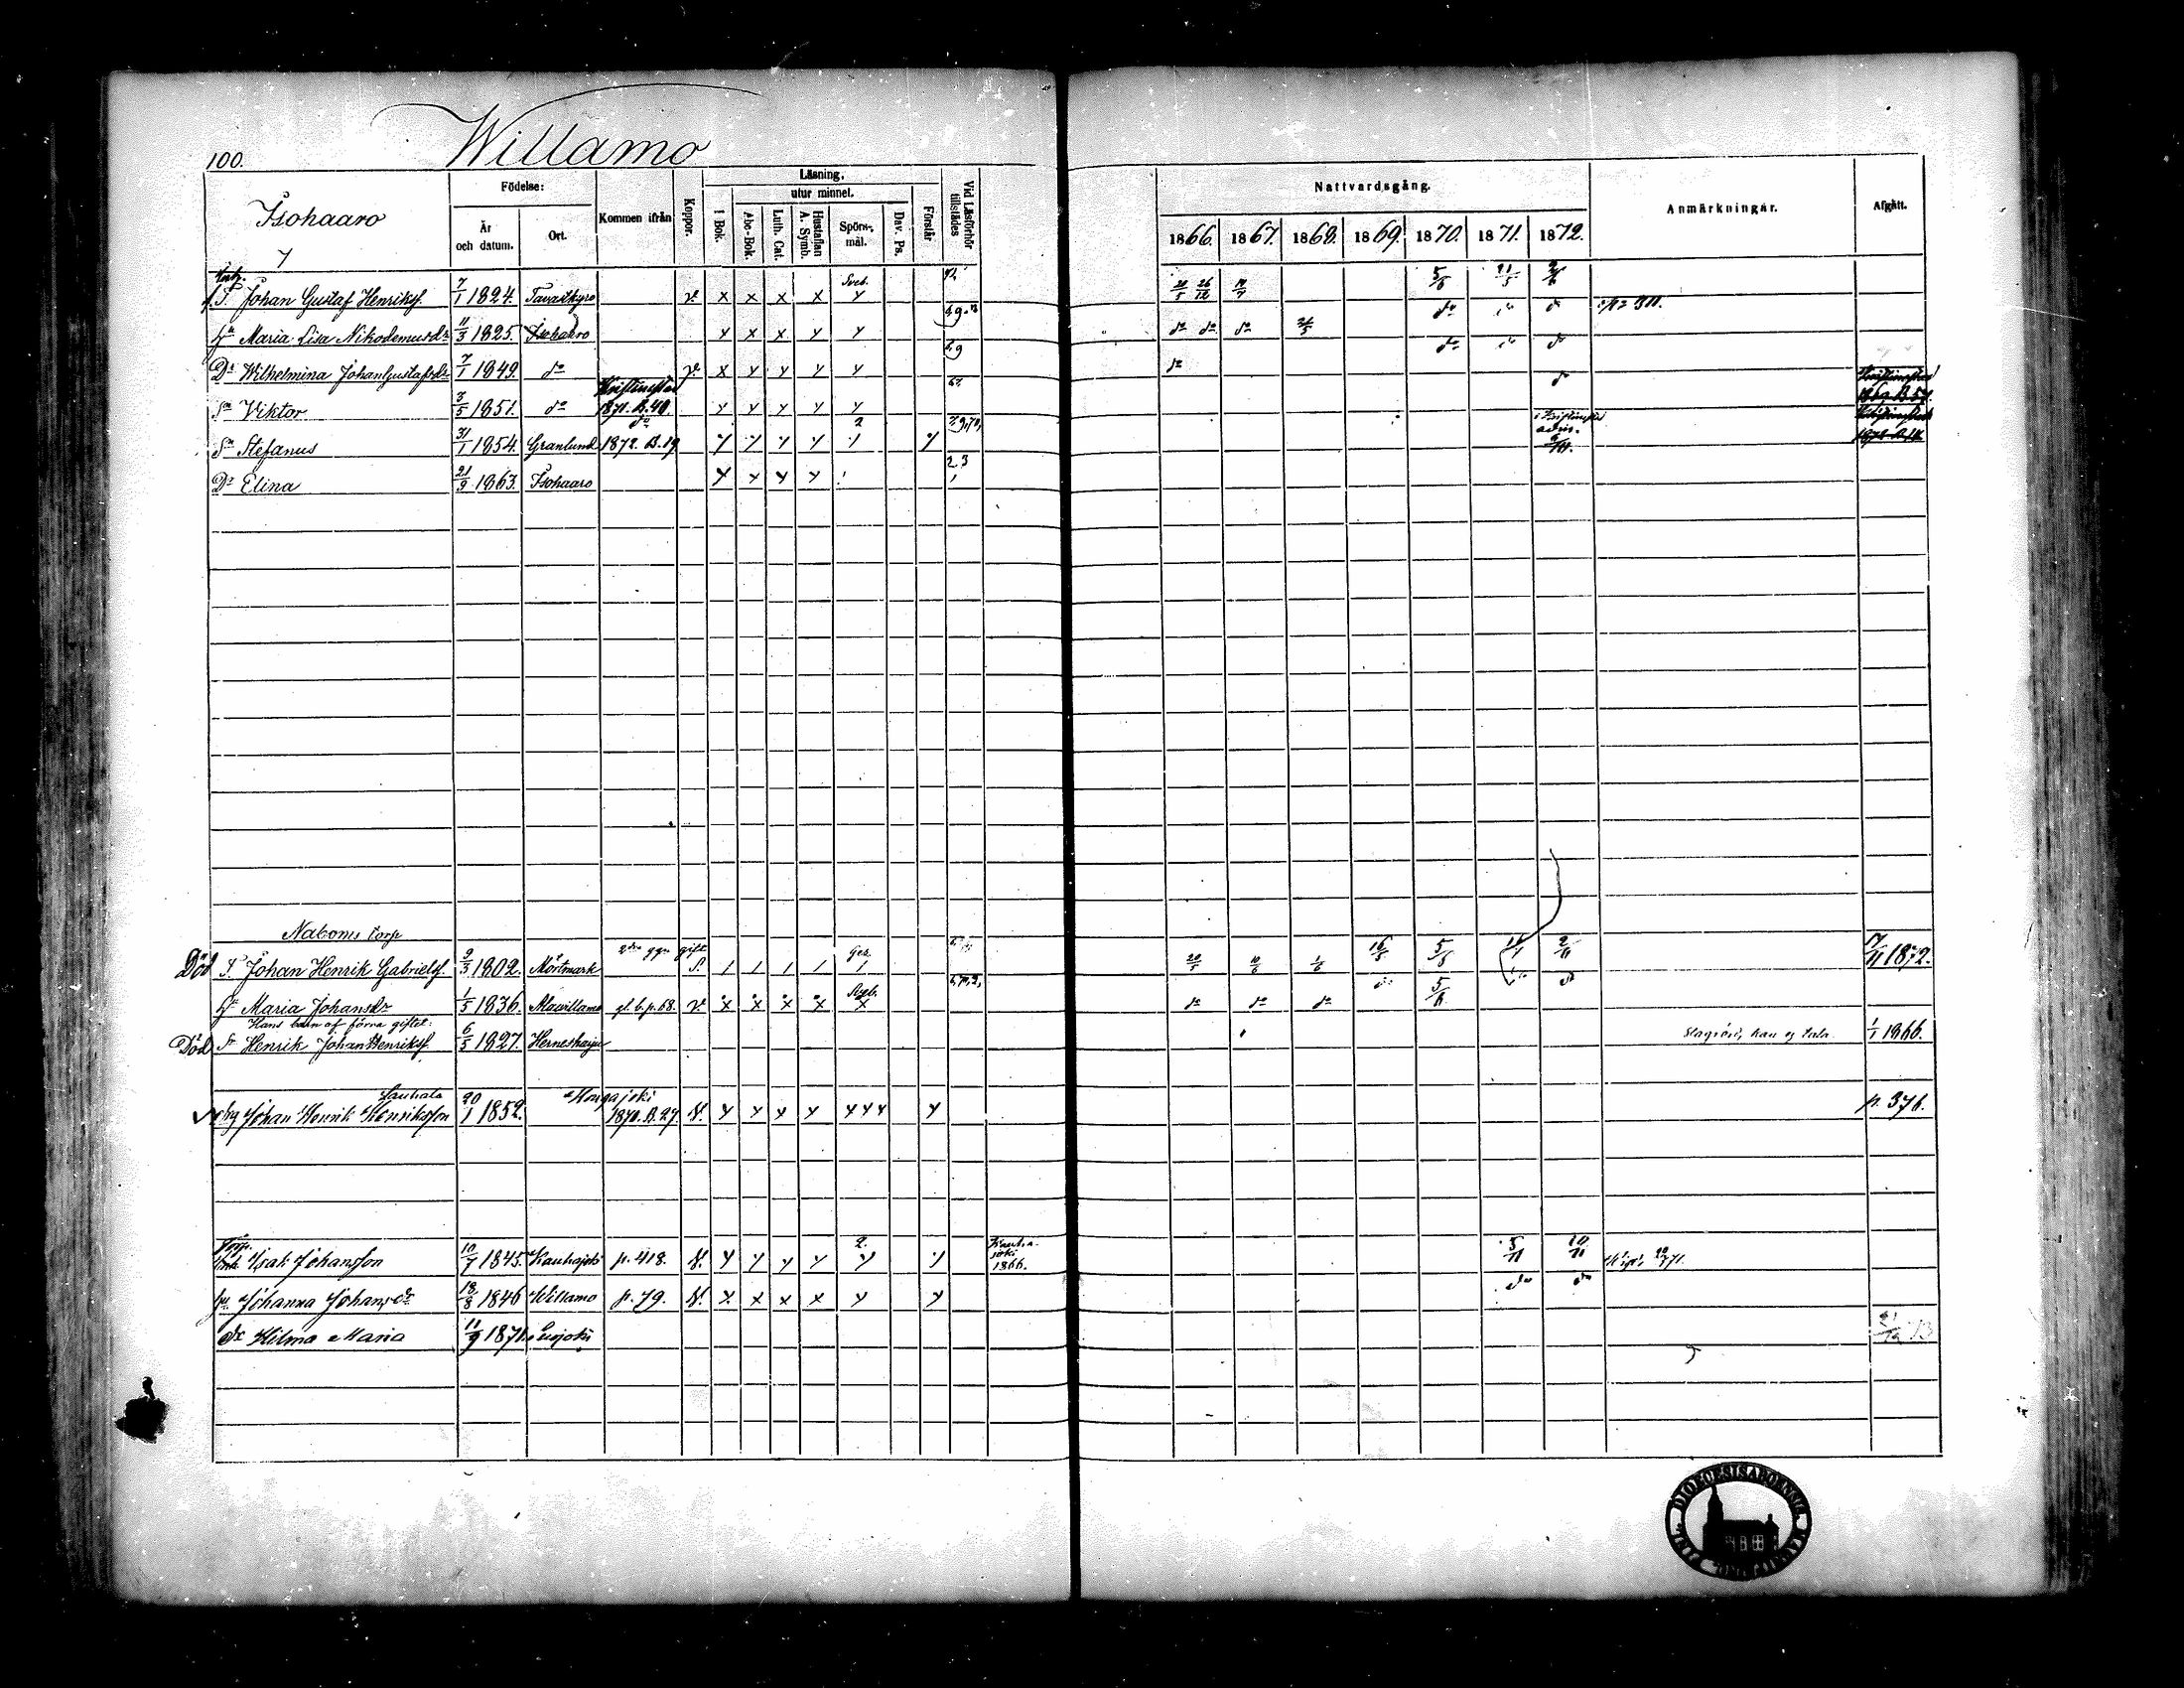 100. Willamo
Isohaaro
Födelse:
År och datum.
Ort.
Kommen ifrån
Koppor.
Läsning,
utur minnet.
I Bok.
Abc-Bok.
Luth. Cat.
Hustaflan A. Symb.
Spörs-mål.
Dav. Ps.
Förstår
Vid Läsförhör tillstädes
Nattvardsgång.
1866. 1867. 1868. 1869. 1870. 1871. 1872.
Anmärkningar.
Afgått.
T. Johan Gustaf Henriksf. 7/1 1824. Tavastkyro v. x x x x Sveb. y 20/5 26/12 5/6 21/5
Hu Maria Lisa Nikodemusdr 11/3 1825. Isohaaro y x x y y do do do 24/5 do do
Dr Wilhelmina JohanGustafsdr 7/1 1849. do v. x y y y y do do do
Sn Viktor 3/5 1851. do Kristinestad 1871. B. 40 y y y y y do
Sn Stefanus 31/1 1854. Granlund do 1872. B. 19. 2
Dr Elina 21/9 1863. Isohaaro y y y y 2 3
Nabons torp
Död T. Johan Henrik Gabrielsf. 9/3 1802. Mörtmark 2dra ggn gift S. / / / / / 20/5 10/6 1/6 16/5 5/6 2/11 17/11 1872.
Hu Maria Johansdr 1/5 1836. Alawillamo gl. b. p. 68. v. x x x x Sveb. x do do do do 5/6 do
Hans barn af förra giftet:
Död Sn Henrik JohanHenriksf. 6/5 1827. Herneskarju 1/1 1866.
Lauhala
drg Johan Henrik Henriksson 20/1 1852. Hongajoki 1870. B. 27. v. y y y y y y y y p. 376.
Torp. Isak Johansson 10/7 1845. Kauhajoki p. 418. v. y y y y 2. y y Kauhajoki 1866. 5/11 10/11
hu Johanna Johansdr 18/8 1846 Willamo p. 79. v. x x x x y y do do
dr Hilma Maria 11/9 1871.
DIOECESIS ABOENSIS